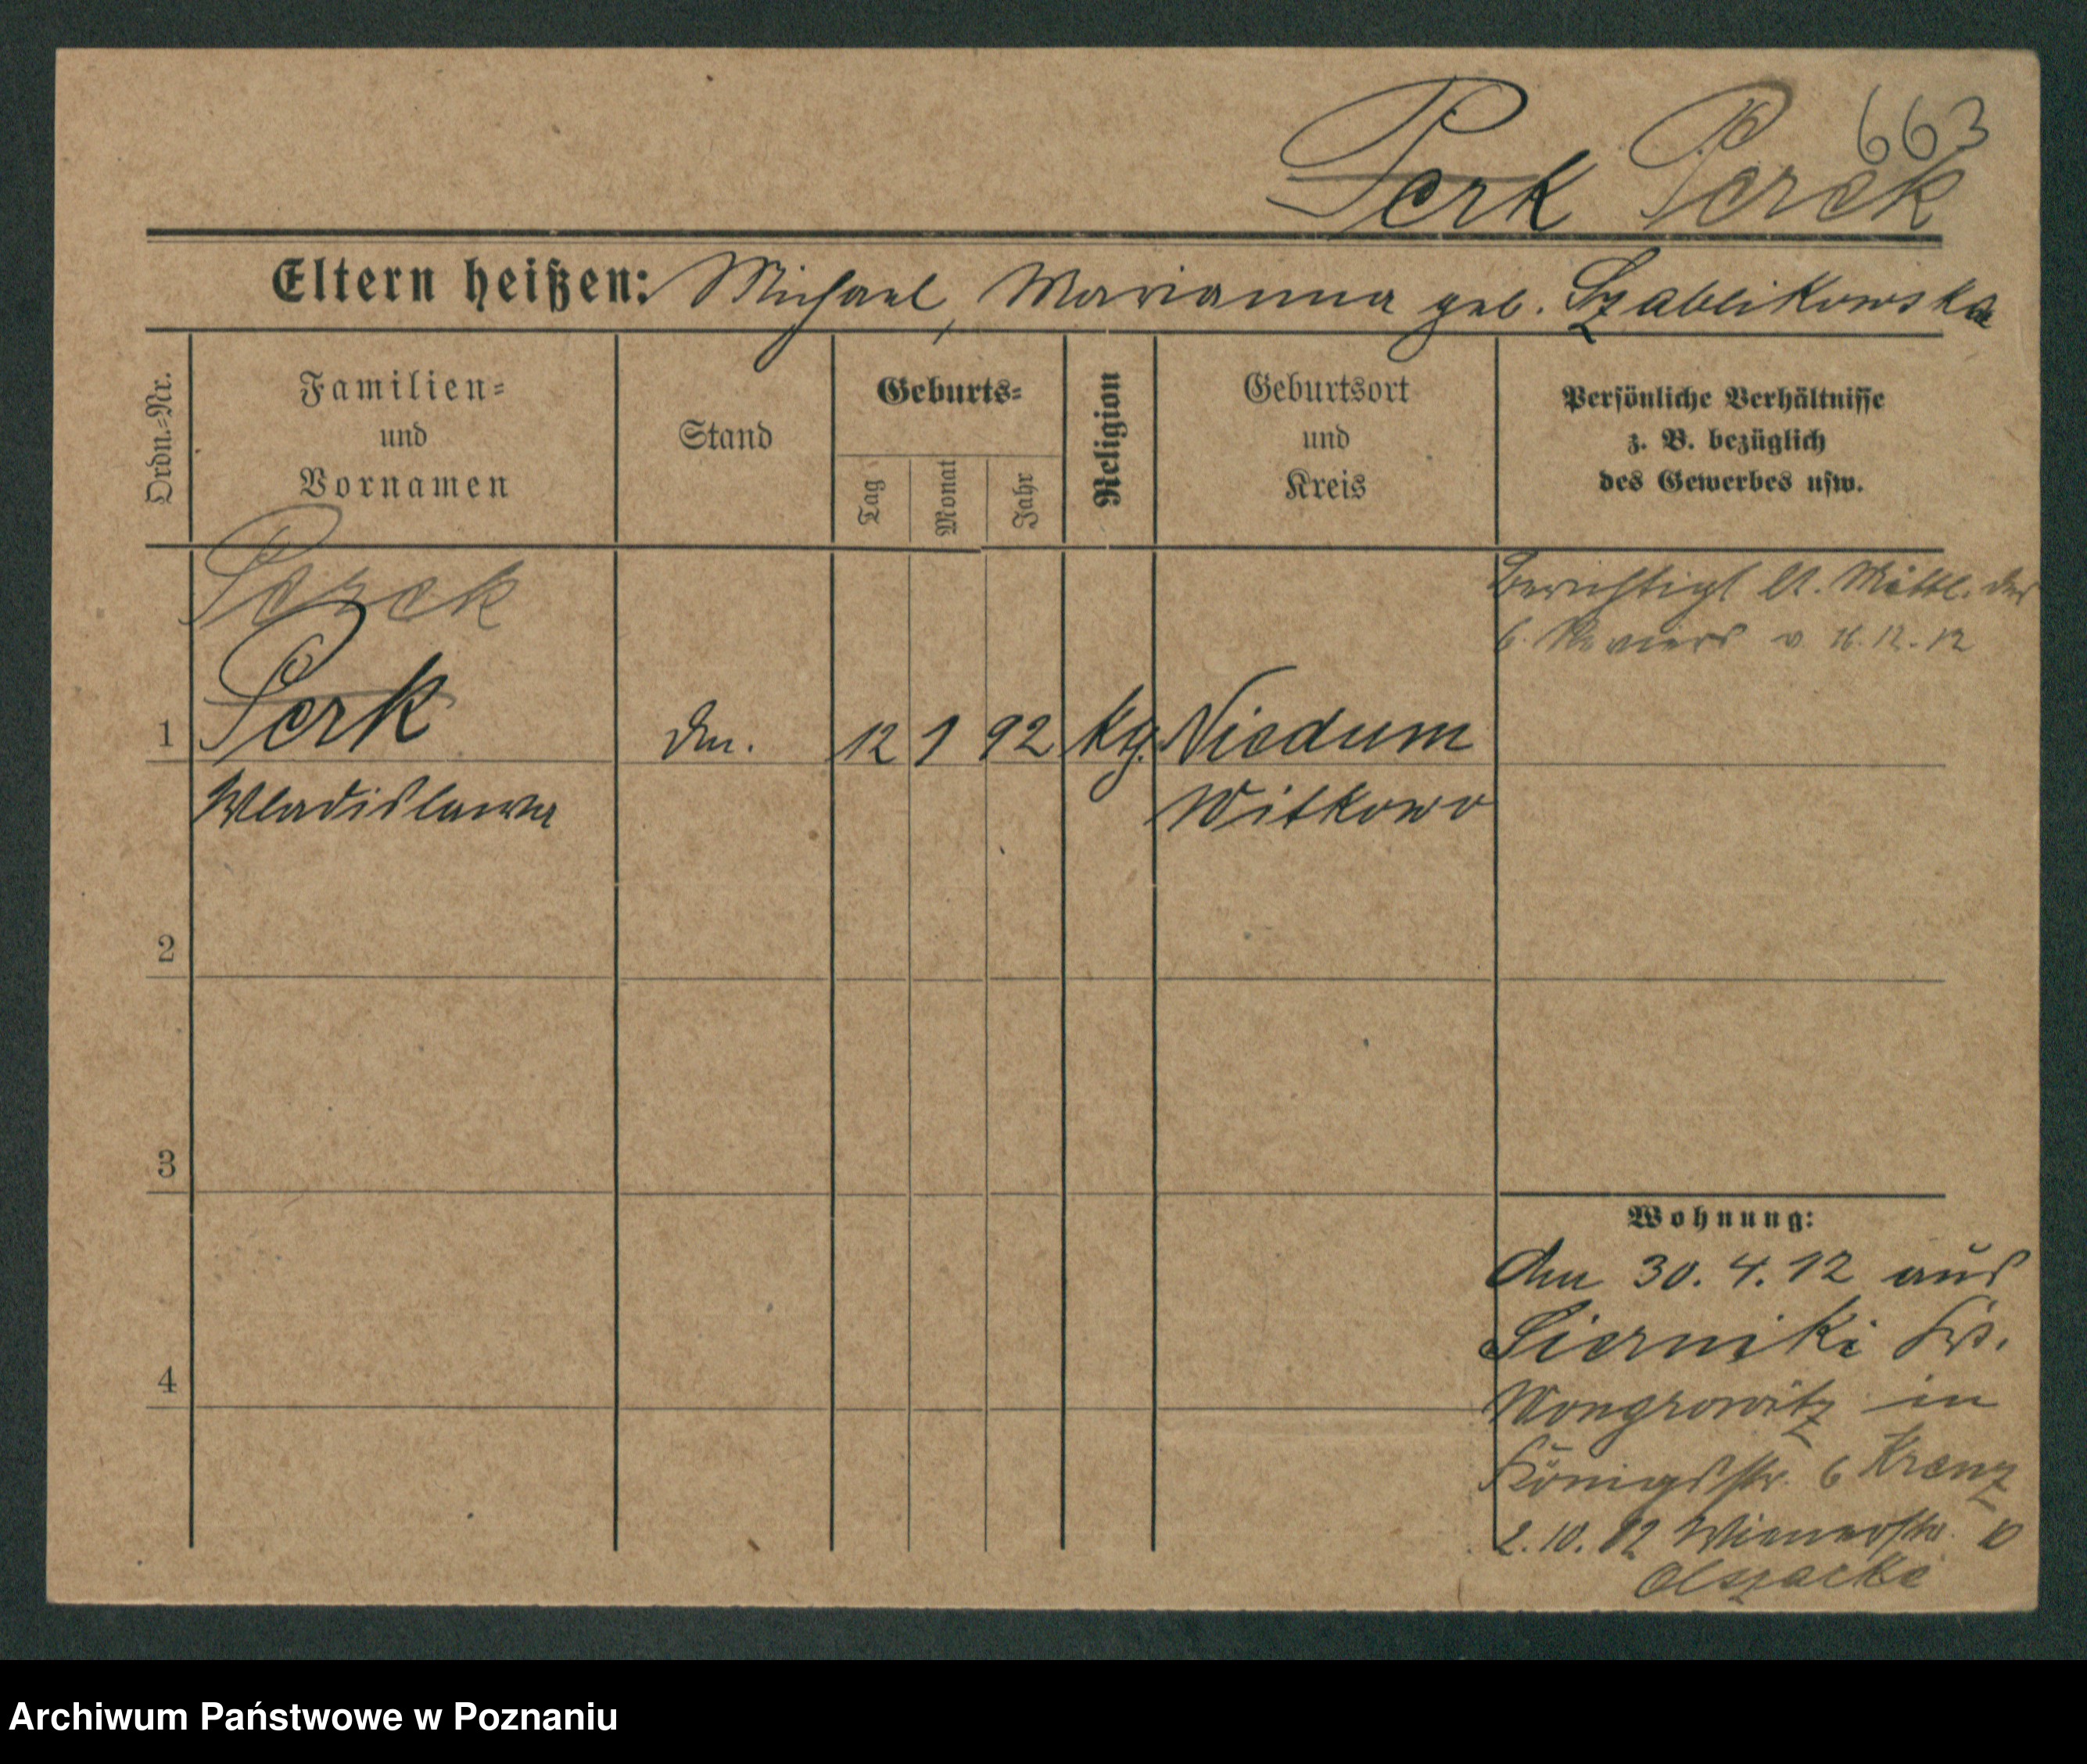 663
Perk Perek
Eltern heißen: Michael, Marianna geb. Szablikowska
Ordn.-Nr.
Familien-
und
Vornamen
Stand
Geburts-
Tag
Monat
Jahr
Religion
Geburtsort
und
Kreis
Persönliche Verhältnisse
z. B. bezüglich
des Gewerbes usw.
Perek
Berichtigt lt. Mittl. der
6. Reviers v 16.12.12
1 Perk
12 1 92 Niedum
Wladislawa
Witkowo
2
3
4
Wohnung:
Am 30. 4. 12 aus
Sierniki Krs.
Wongrowitz in
Königsstr. 6 Krenz
2. 10. 12 Wienerstr. 10
Olszacka
Archiwum Państwowe w Poznaniu